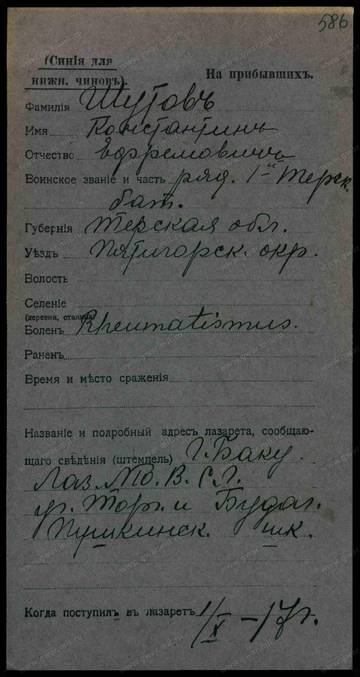 586
(Синія для
нижн. чиновъ).
На прибывшихъ.
Фамилія Шутовъ
Имя Константинъ
Отчество Ефремовичъ
Воинское званіе и часть ряд. 1й Терск.
бат.
Губернія Терская обл.
Уѣздъ Пятигорск. окр.
Волость
Селеніе
(деревня, станица)
Боленъ Rheumatismus.
Раненъ
Время и мѣсто сраженія
Названіе и подробный адресъ лазарета, сообщаю-
щаго свѣдѣнія (штемпель) г. Баку.
Лаз. № В. С. Л.
уг. Торг. и Будаг.
Пушкинск. шк.
Когда поступилъ въ лазаретъ 1/X – 17 г.